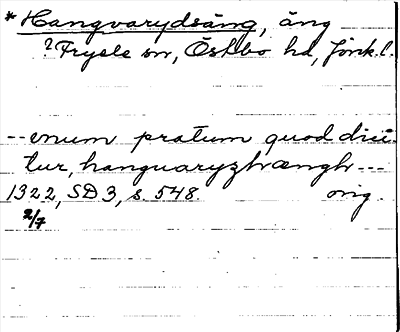 * Hangvarydsäng, äng
? Fryele sn, Östbo hd, Jönk.l.
-- enum pratum quod dici-
tur, hanguaryzhængh ---
1322, SD 3, s. 548. orig.
2/7